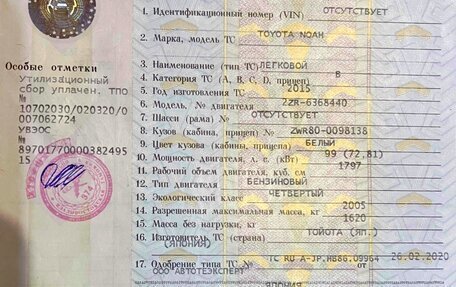 1. Идентификационный номер (VIN) ОТСУТСТВУЕТ
2. Марка, модель ТС TOYOTA NOAH
3. Наименование (тип ТС) ЛЕГКОВОЙ
4. Категория ТС (A, B, C, D, прицеп) B
5. Год изготовления ТС 2015
6. Модель, № двигателя 2ZR-6368440
7. Шасси (рама) № ОТСУТСТВУЕТ
8. Кузов (кабина, прицеп) № ZWR80-0098138
9. Цвет кузова (кабины, прицепа) БЕЛЫЙ
10. Мощность двигателя, л. с. (кВт) 99 (72,81)
11. Рабочий объем двигателя, куб. см 1797
12. Тип двигателя БЕНЗИНОВЫЙ
13. Экологический класс ЧЕТВЕРТЫЙ
14. Разрешенная максимальная масса, кг 2005
15. Масса без нагрузки, кг 1620
16. Изготовитель ТС (страна) ТОЙОТА (ЯП.)
(ЯПОНИЯ)
17. Одобрение типа ТС № ТС RU A-JP.МВ86.09964 от 26.02.2020
ООО "АВТОТЕХЭКСПЕРТ"
ЯПОНИЯ
Особые отметки
Утилизационный
сбор уплачен. ТПО
№
10702030/020320/0
007062724
УВЭОС
№
89701770000382495
15